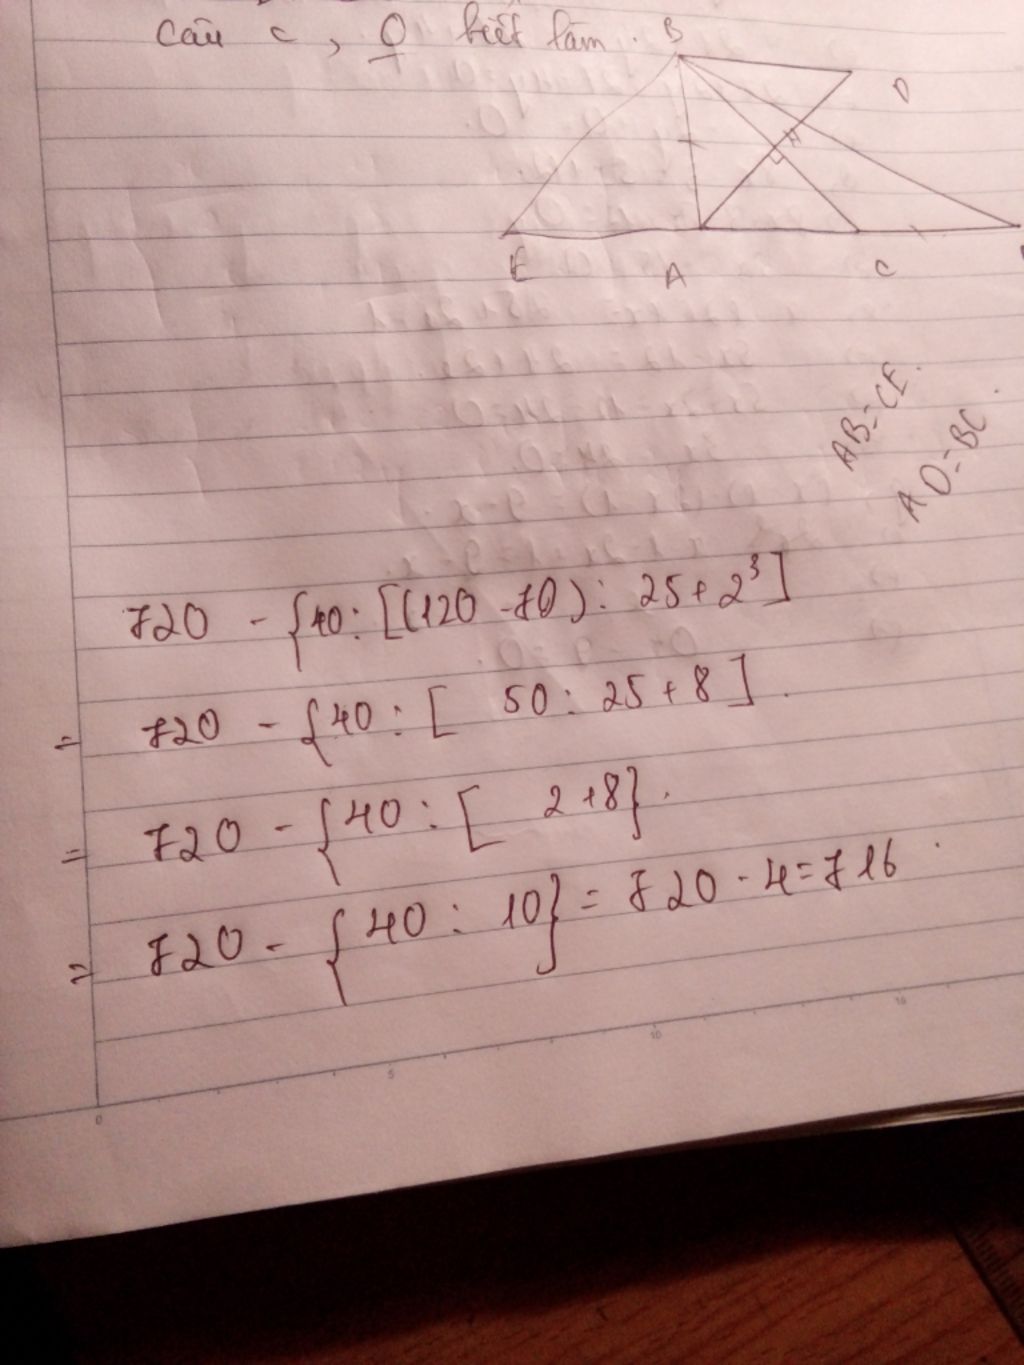 câu c, O biết làm.
B
D
H
E
A
C
AB=CE.
AD=BC.
720 - {40: [(120 -70): 25+2³]
= 720 - {40: [ 50: 25+8].
= 720 - {40: [ 2+8}.
= 720 - {40: 10} = 720 - 4=716.
0 5 10 15